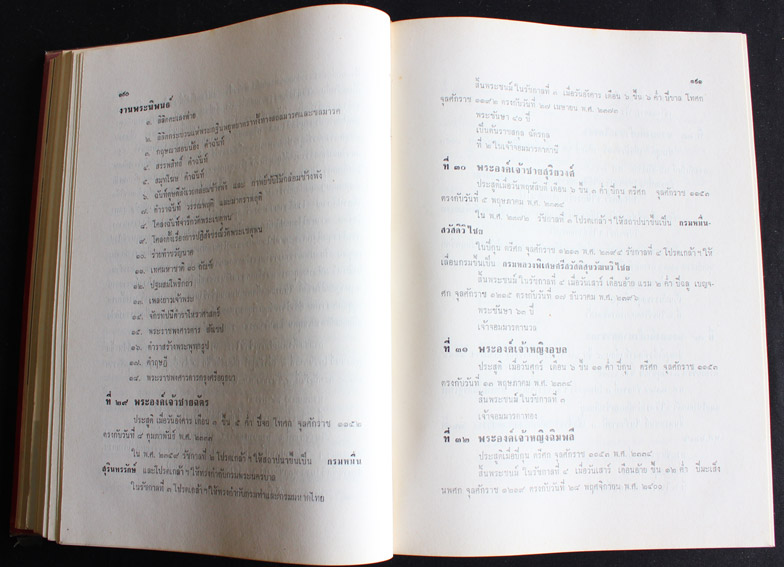 ๑๙๐
งานพระนิพนธ์
๑. ลิลิตตะเลงพ่าย
๒. ลิลิตกระบวนแห่พระกฐินพยุหยาตราทั้งทางสถลมารคและชลมารค
๓. กฤษณาสอนน้อง คำฉันท์
๔. สรรพสิทธิ์ คำฉันท์
๕. สมุทโฆษ คำฉันท์
๖. ฉันท์ดุษฎีสังเวยกล่อมช้างพัง และ
๗. ตำราฉันท์ วรรณพฤติ และมาตราพฤติ
๘. โคลงฉันท์จารึกวัดพระเชตุพน
๙. โคลงดั้นเรื่องการปฏิสังขรณ์วัดพระเชตุพน
๑๐. ร่ายทำขวัญนาค
๑๑. เทศมหาชาติ ๑๑ กัณฑ์
๑๒. ปฐมสมโพธิกถา
๑๓. เพลงยาวเจ้าพระ
๑๔. จักรทีปนีตำราโหราศาสตร์
๑๕. พระราชพงศาวดาร สังเขป
๑๖. ตำราสร้างพระพุทธรูป
๑๗. คำฤษฎี
๑๘. พระราชพงศาวดารกรุงศรีอยุธยา
ที่ ๒๙ พระองค์เจ้าชายฉัตร
ประสูติ เมื่อวันอังคาร เดือน ๓ ขึ้น ๕ ค่ำ ปีจอ โทศก จุลศักราช ๑๑๕๒
ตรงกับวันที่ ๘ กุมภาพันธ์ พ.ศ. ๒๓๓๓
ใน พ.ศ. ๒๓๕๙ รัชกาลที่ ๒ โปรดเกล้า ฯ ให้สถาปนาขึ้นเป็น กรมหมื่น
สุรินทรรักษ์ และโปรดเกล้า ฯ ให้ทรงกำกับกรมพระนครบาล
ในรัชกาลที่ ๓ โปรดเกล้า ฯ ให้ทรงกำกับกรมท่าและกรมมหาดไทย
๑๙๑
สิ้นพระชนม์ ในรัชกาลที่ ๓ เมื่อวันอังคาร เดือน ๖ ขึ้น ๖ ค่ำ ปีขาล โทศก
จุลศักราช ๑๑๙๒ ตรงกับวันที่ ๒๗ เมษายน พ.ศ. ๒๓๗๓
พระชันษา ๔๐ ปี
เป็นต้นราชสกุล ฉัตรกุล
ที่ ๒ ในเจ้าจอมมารดาตานี
ที่ ๓๐ พระองค์เจ้าชายสุริยวงศ์
ประสูติเมื่อวันพฤหัสบดี เดือน ๖ ขึ้น ๓ ค่ำ ปีกุน ตรีศก จุลศักราช ๑๑๕๓
ตรงกับวันที่ ๕ พฤษภาคม พ.ศ. ๒๓๓๔
ใน พ.ศ. ๒๓๗๒ รัชกาลที่ ๓ โปรดเกล้า ฯ ให้สถาปนาขึ้นเป็น กรมหมื่น
สวัสดิวิไชย
ในปีกุน ตรีศก จุลศักราช ๑๒๑๓ พ.ศ. ๒๓๙๔ รัชกาลที่ ๔ โปรดเกล้า ฯ ให้
เลื่อนกรมขึ้นเป็น กรมหลวงพิเศษศรีสวัสดิสุขวัฒนวิไชย
สิ้นพระชนม์ ในรัชกาลที่ ๔ เมื่อวันเสาร์ เดือนอ้าย แรม ๒ ค่ำ ปีฉลู เบญจ-
ศก จุลศักราช ๑๒๑๕ ตรงกับวันที่ ๑๗ ธันวาคม พ.ศ. ๒๓๙๖
พระชันษา ๖๓ ปี
เจ้าจอมมารดานวล
ที่ ๓๑ พระองค์เจ้าหญิงอุบล
ประสูติ เมื่อวันศุกร์ เดือน ๖ ขึ้น ๑๑ ค่ำ ปีกุน ตรีศก จุลศักราช ๑๑๕๓
ตรงกับวันที่ ๑๓ พฤษภาคม พ.ศ. ๒๓๓๔
สิ้นพระชนม์ ในรัชกาลที่ ๓
เจ้าจอมมารดาทอง
ที่ ๓๒ พระองค์เจ้าหญิงฉิมพลี
ประสูติเมื่อปีกุน ตรีศก จุลศักราช ๑๑๕๓ พ.ศ. ๒๓๓๔
สิ้นพระชนม์ ในรัชกาลที่ ๔ เมื่อวันเสาร์ เดือนอ้าย ขึ้น ๑๒ ค่ำ ปีมะเส็ง
นพศก จุลศักราช ๑๒๑๙ ตรงกับวันที่ ๒๘ พฤศจิกายน พ.ศ. ๒๔๐๐